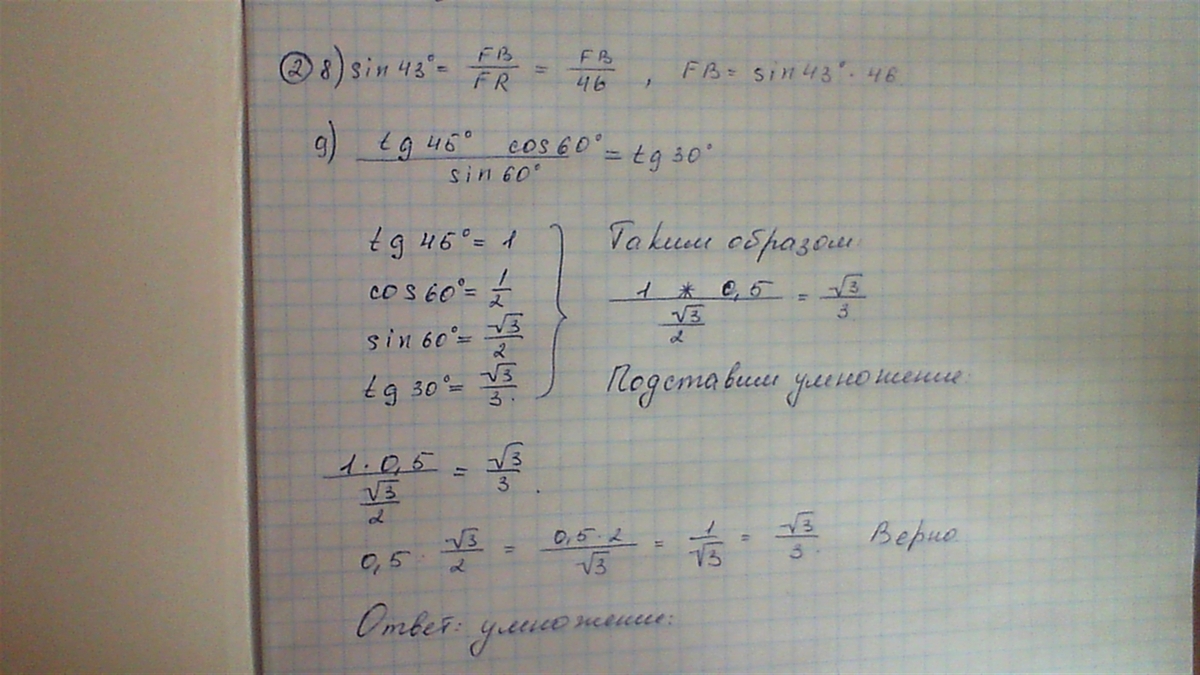 ② 8) sin 43° = FB/FR = FB/46 , FB = sin 43° · 46
9) (tg 45° cos 60°)/(sin 60°) = tg 30°
tg 45° = 1
cos 60° = 1/2
sin 60° = √3/2
tg 30° = √3/3.
Таким образом:
(1 * 0,5)/(√3/2) = √3/3
Подставим умножение:
(1 · 0,5)/(√3/2) = √3/3.
0,5 · √3/2 = (0,5 · 2)/√3 = 1/√3 = √3/3. Верно
Ответ: умножение: